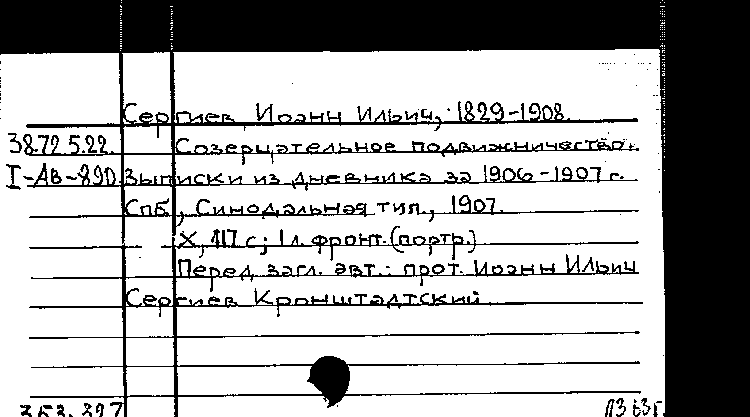 Сергиев, Иоанн Ильич, 1829-1908.
38.72.5.22. Созерцательное подвижничество.
I-Ав-890 Выписки из дневника за 1906-1907 г.
Спб, Синодальная тип., 1907.
X, 117 с; 1 л. фронт. (портр.)
Перед загл. авт.: прот. Иоанн Ильич
Сергиев Кронштадтский
353. 327 ЛЗ 63г.